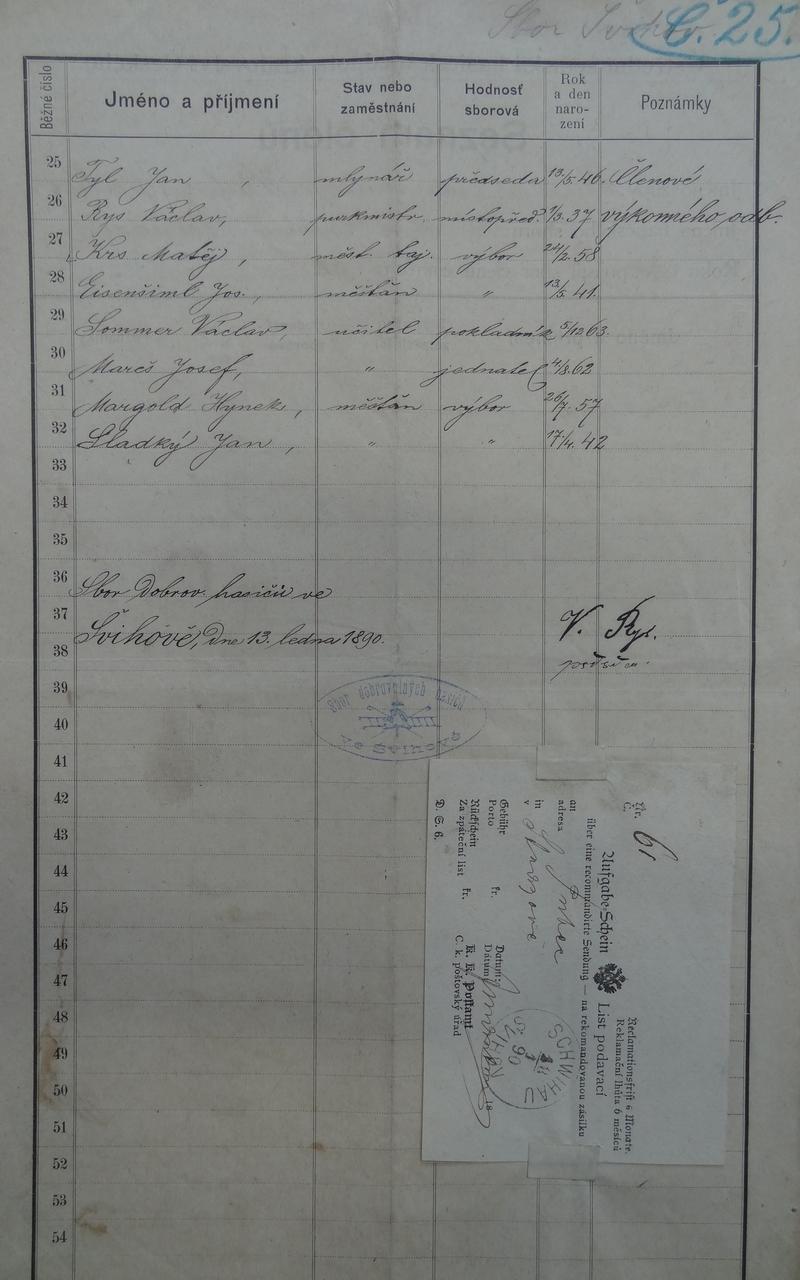 Sbor Švihov
Č. 25.
Běžné číslo Jméno a příjmení Stav nebo zaměstnání Hodnosť sborová Rok a den narození Poznámky
25 Tyl Jan, mlynář předseda 13/5. 46. Členové
26 Rys Václav, purkmistr. místopřed. 1/3. 37 výkonného odb.
27 Krs Matěj, měst. taj. výbor 24/2. 58
28 Eisenšiml Jos., měšťan " 13/5. 41.
29 Sommer Václav, učitel pokladník 5/12 63.
30 Mareš Josef, " jednatel 4/8. 62
31 Margold Hynek, měšťan výbor 26/7. 57
32 Sladký Jan, " " 17/4. 42
33
34
35
36 Sbor Dobrov. hasičů ve
37
Švihově, Dne 13. ledna 1890. V. Rys.
38
39
Sbor dobrovolných hasičů
ve Švihově
40
41
42
43
44
45
46
47
48
49
50
51
52
53
54
Reclamationsfrist 6 Monate.
Reklamační lhůta 6 měsíců
Nr.
Č. 61
Aufgabs-Schein List podavací
über eine recommandirte Sendung — na rekomandovanou zásilku
an
adresa
in
v
Gebühr fr. Datum
Porto Dátum
Rückschein fr. K. K. Postamt
Za zpáteční list C. k. poštovský úřad
18
D. S. 6.
SCHWIHAU
90